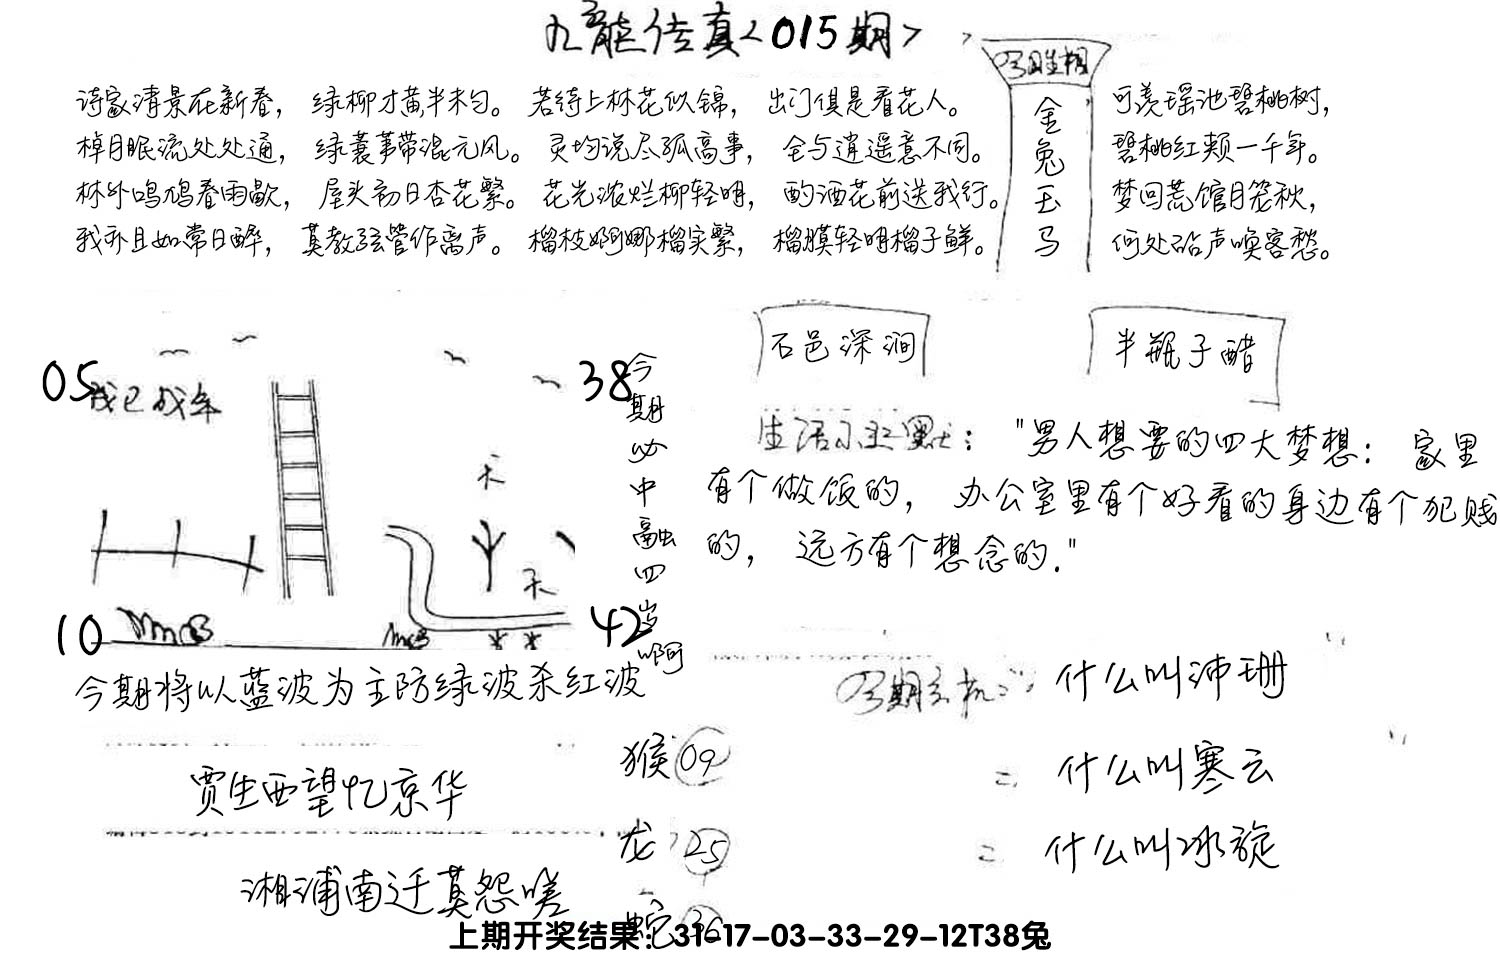 九龙传真<015期>
诗家清景在新春，绿柳才黄半未匀。若待上林花似锦，出门俱是看花人。
棹月眠流处处通，绿蓑苇带混元风。灵均说尽孤高事，全与逍遥意不同。
林外鸣鸠春雨歇，屋头初日杏花繁。花光浓烂柳轻明，酌酒花前送我行。
我亦且如常日醉，莫教弦管作离声。榴枝婀娜榴实繁，榴膜轻明榴子鲜。
金兔玉马
可羡瑶池碧桃树，
碧桃红颊一千年。
梦回荒馆月笼秋，
何处砧声唤客愁。
05
38
10
42
天
天
今期必中融四岁啊
今期将以蓝波为主防绿波杀红波
石邑深涧
半瓶子醋
生活小幽默："男人想要的四大梦想：家里
有个做饭的，办公室里有个好看的身边有个犯贱
的，远方有个想念的."
今期玄机：什么叫沛珊
什么叫寒云
什么叫冰旋
贾生西望忆京华
湘浦南迁莫怨嗟
猴 09
龙 25
蛇 36
上期开奖结果：31-17-03-33-29-12T38兔